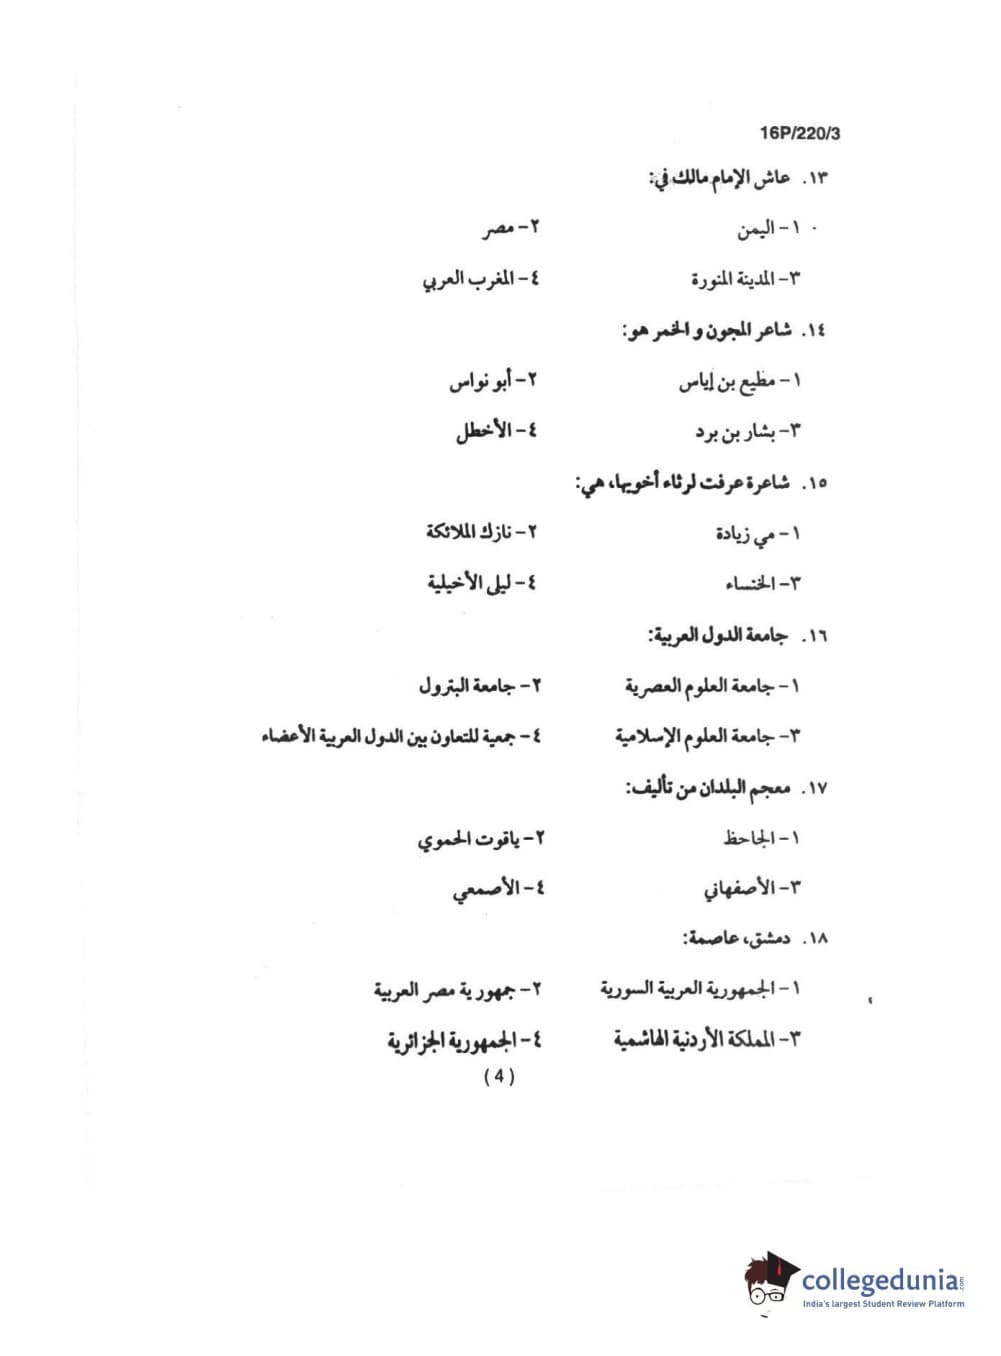 16P/220/3
١٣. عاش الإمام مالك في:
١- اليمن ٢- مصر
٣- المدينة المنورة ٤- المغرب العربي
١٤. شاعر المجون و الخمر هو:
١- مطيع بن إياس ٢- أبو نواس
٣- بشار بن برد ٤- الأخطل
١٥. شاعرة عرفت لرثاء أخويها، هي:
١- مي زيادة ٢- نازك الملائكة
٣- الخنساء ٤- ليلى الأخيلية
١٦. جامعة الدول العربية:
١- جامعة العلوم العصرية ٢- جامعة البترول
٣- جامعة العلوم الإسلامية ٤- جمعية للتعاون بين الدول العربية الأعضاء
١٧. معجم البلدان من تأليف:
١- الجاحظ ٢- ياقوت الحموي
٣- الأصفهاني ٤- الأصمعي
١٨. دمشق، عاصمة:
١- الجمهورية العربية السورية ٢- جمهورية مصر العربية
٣- المملكة الأردنية الهاشمية ٤- الجمهورية الجزائرية
(4)
collegedunia.com
India's largest Student Review Platform